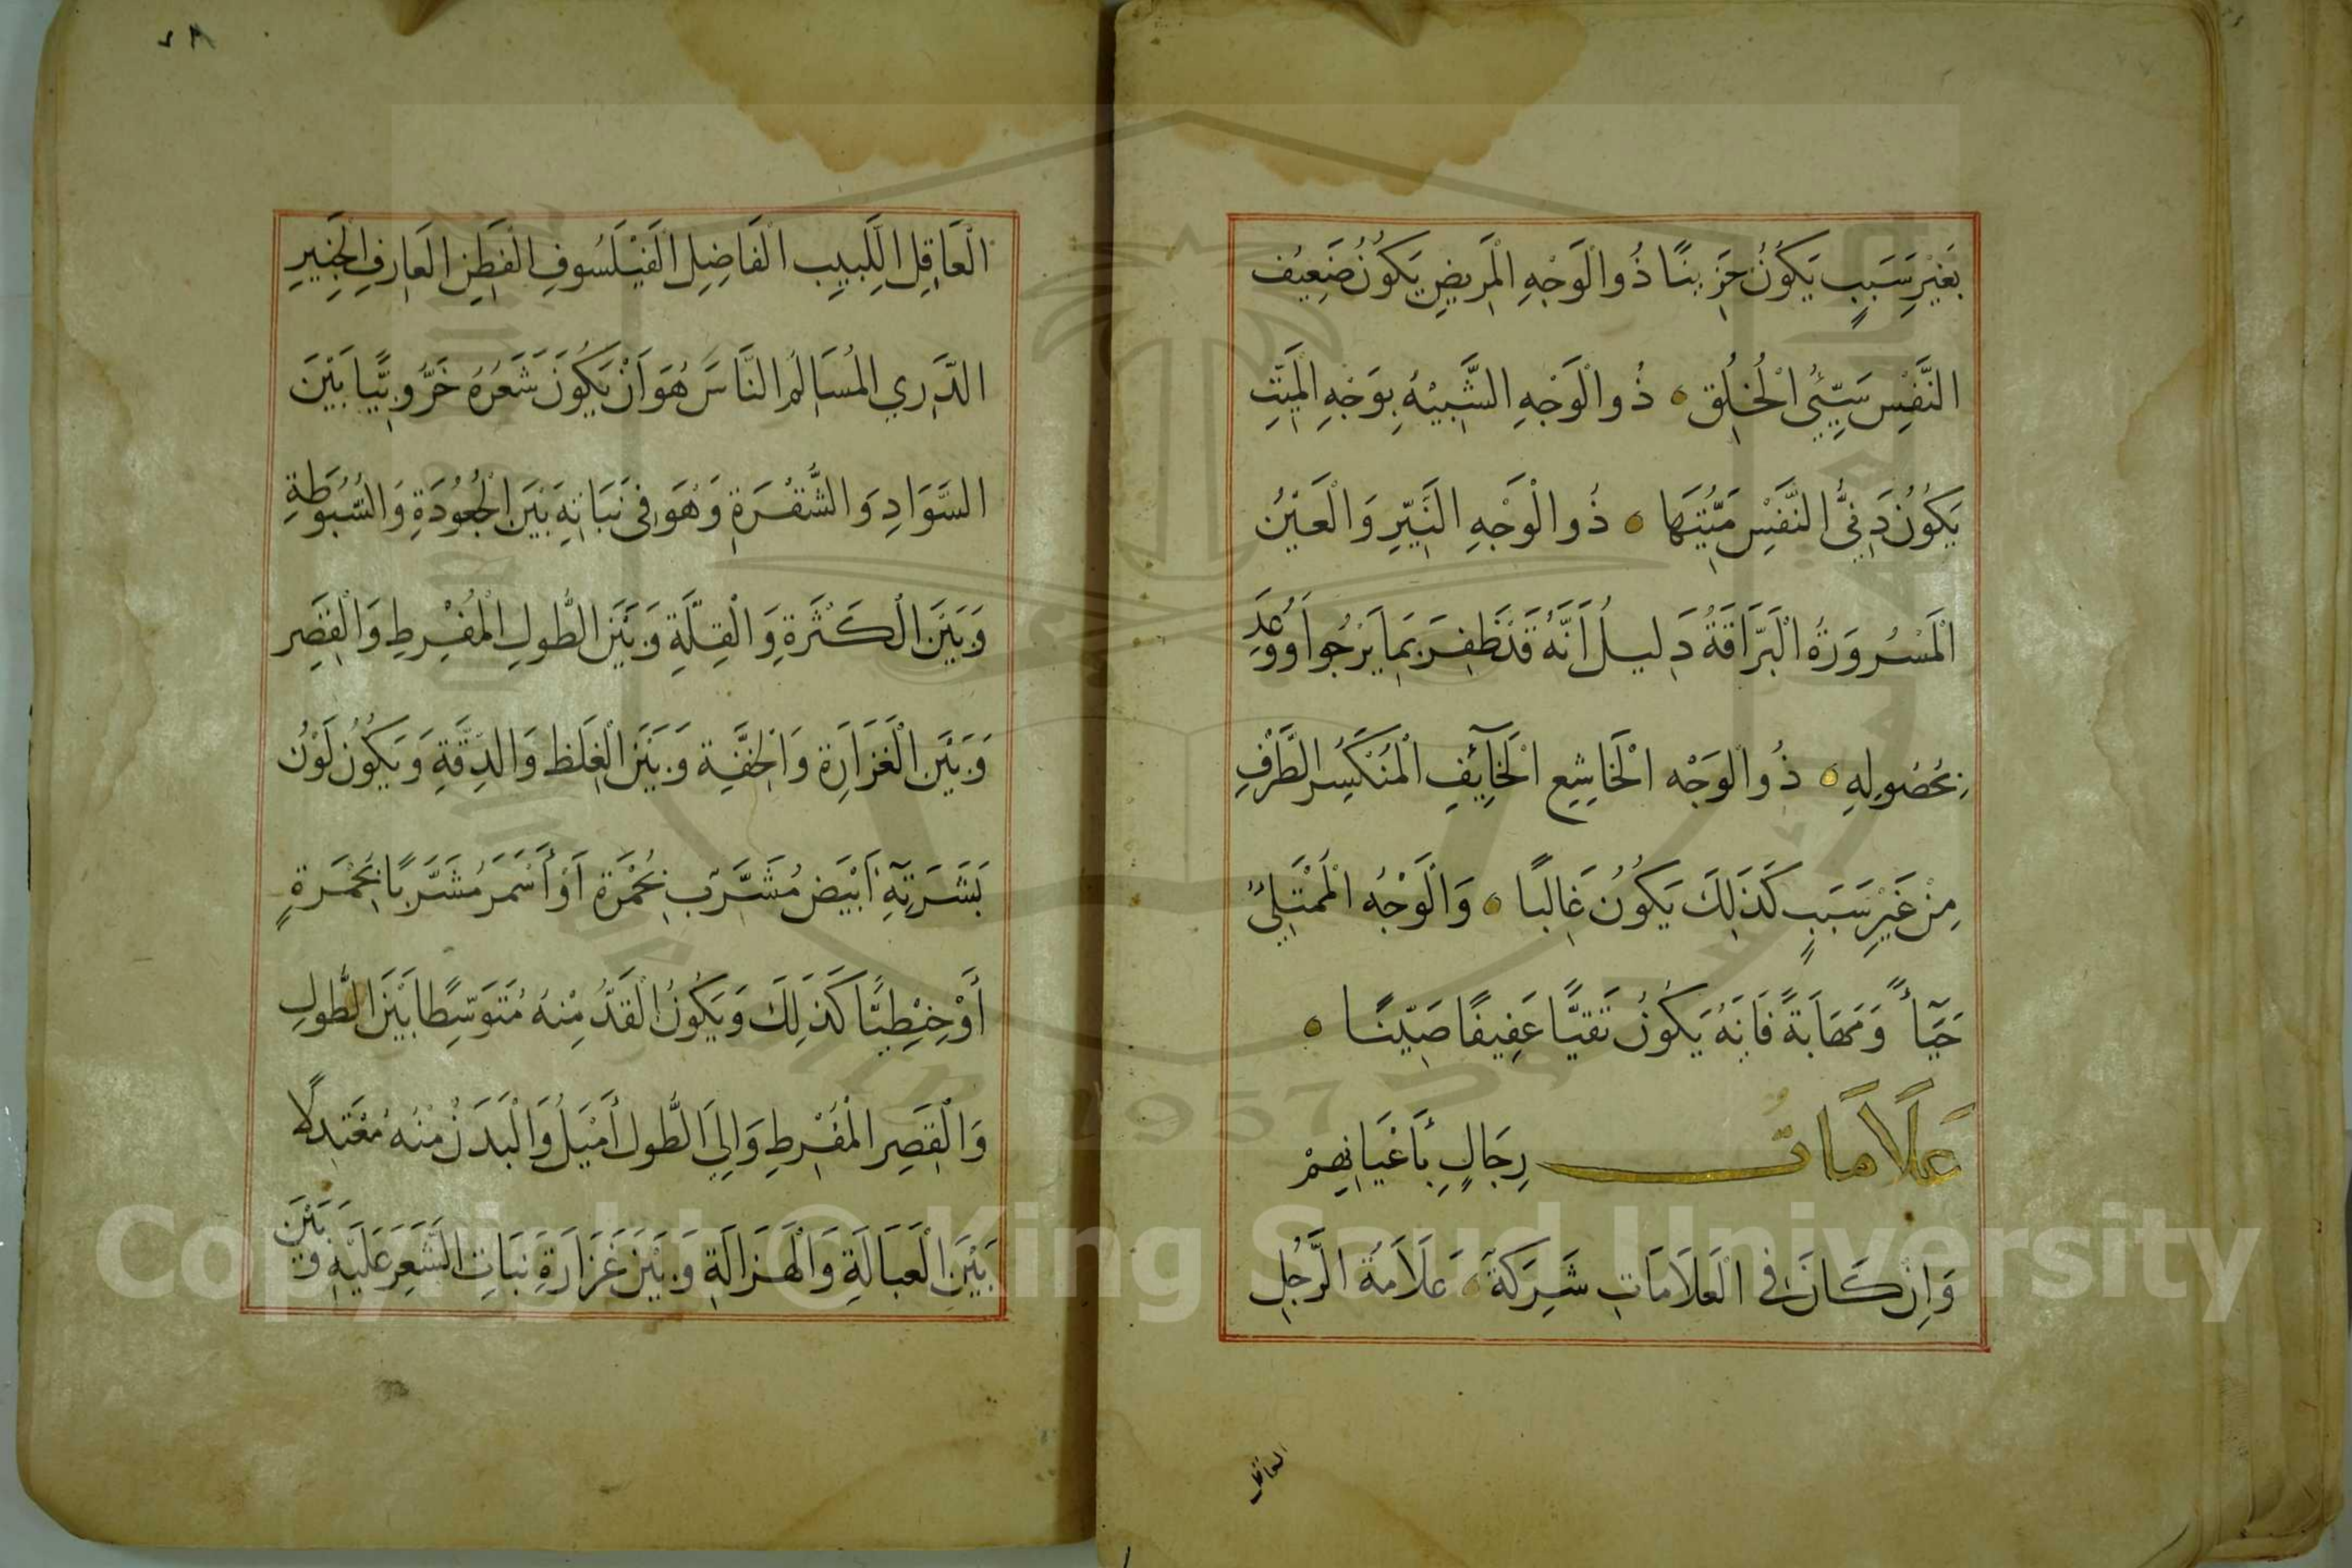 بِغَيْرِ سَبَبٍ يَكُونُ حَزِينًا ذُو الْوَجْهِ الْمَرِيضِ يَكُونُ ضَعِيفَ
النَّفْسِ سَيِّئُ الْخُلُقِ ٥ ذُو الْوَجْهِ الشَّبِيْهُ بِوَجْهِ الْمَيِّتِ
يَكُونُ دَنِيُّ النَّفْسِ مَيِّتَهَا ٥ ذُو الْوَجْهِ النَّيِّرِ وَالْعَيْنُ
الْمَسْرُورَةُ الْبَرَّاقَةُ دَلِيلُ أَنَّهُ قَدْ ظَفِرَ بِمَا يَرْجُوا أَوْ وُعِدَ
بِحُصُولِهِ ٥ ذُو الْوَجْهِ الْخَاشِعِ الْخَآئِفِ الْمُنْكَسِرِ الطَّرْفِ
مِنْ غَيْرِ سَبَبٍ كَذَلِكَ يَكُونُ غَالِبًا ٥ وَالْوَجْهُ الْمُمْتَلِئُ
حَيَآءً وَمَهَابَةً فَإِنَّهُ يَكُونُ تَقِيًّا عَفِيفًا صَيِّنًا ٥
عَلَامَات رِجَالٍ بِأَعْيَانِهِمْ
وَإِنْ كَانَ فِي الْعَلَامَاتِ شَرِكَةٌ ٥ عَلَامَةُ الرَّجُلِ
العاقل
٢٨
الْعَاقِلِ اللَّبِيبِ الْفَاضِلِ الْفَيْلَسُوفِ الْفَطِنِ الْعَارِفِ الْخَبِيرِ
الدَّرِي الْمُسَالِمُ النَّاسَ هُوَ أَنْ يَكُونَ شَعَرُهُ خَرُّوبِيًّا بَيْنَ
السَّوَادِ وَالشُّقْرَةِ وَهُوَ فِي نَبَاتِهِ بَيْنَ الْجُعُودَةِ وَالسُّبُوطَةِ
وَبَيْنَ الْكَثْرَةِ وَالْقِلَّةِ وَبَيْنَ الطُّولِ الْمُفْرِطِ وَالْقِصَرِ
وَبَيْنَ الْغَزَارَةِ وَالْخِفَّةِ وَبَيْنَ الْغِلَظِ وَالدِّقَّةِ وَيَكُونُ لَوْنُ
بَشَرَتِهِ أَبْيَضَ مُشَرَّبٍ بِحُمْرَةٍ أَوْ أَسْمَرَ مُشَرَّبًا بِحُمْرَةٍ
أَوْ حِنْطِيًّا كَذَلِكَ وَيَكُونُ الْقَدُّ مِنْهُ مُتَوَسِّطًا بَيْنَ الطُّولِ
وَالْقِصَرِ الْمُفْرِطِ وَإِلَى الطُّولِ أَمْيَلُ وَالْبَدَنُ مِنْهُ مُعْتَدِلًا
بَيْنَ الْعَبَالَةِ وَالْهَزَالَةِ وَبَيْنَ غَزَارَةِ نَبَاتِ الشَّعَرِ عَلَيْهِ وَبَيْنَ
Copyright © King Saud University
1957